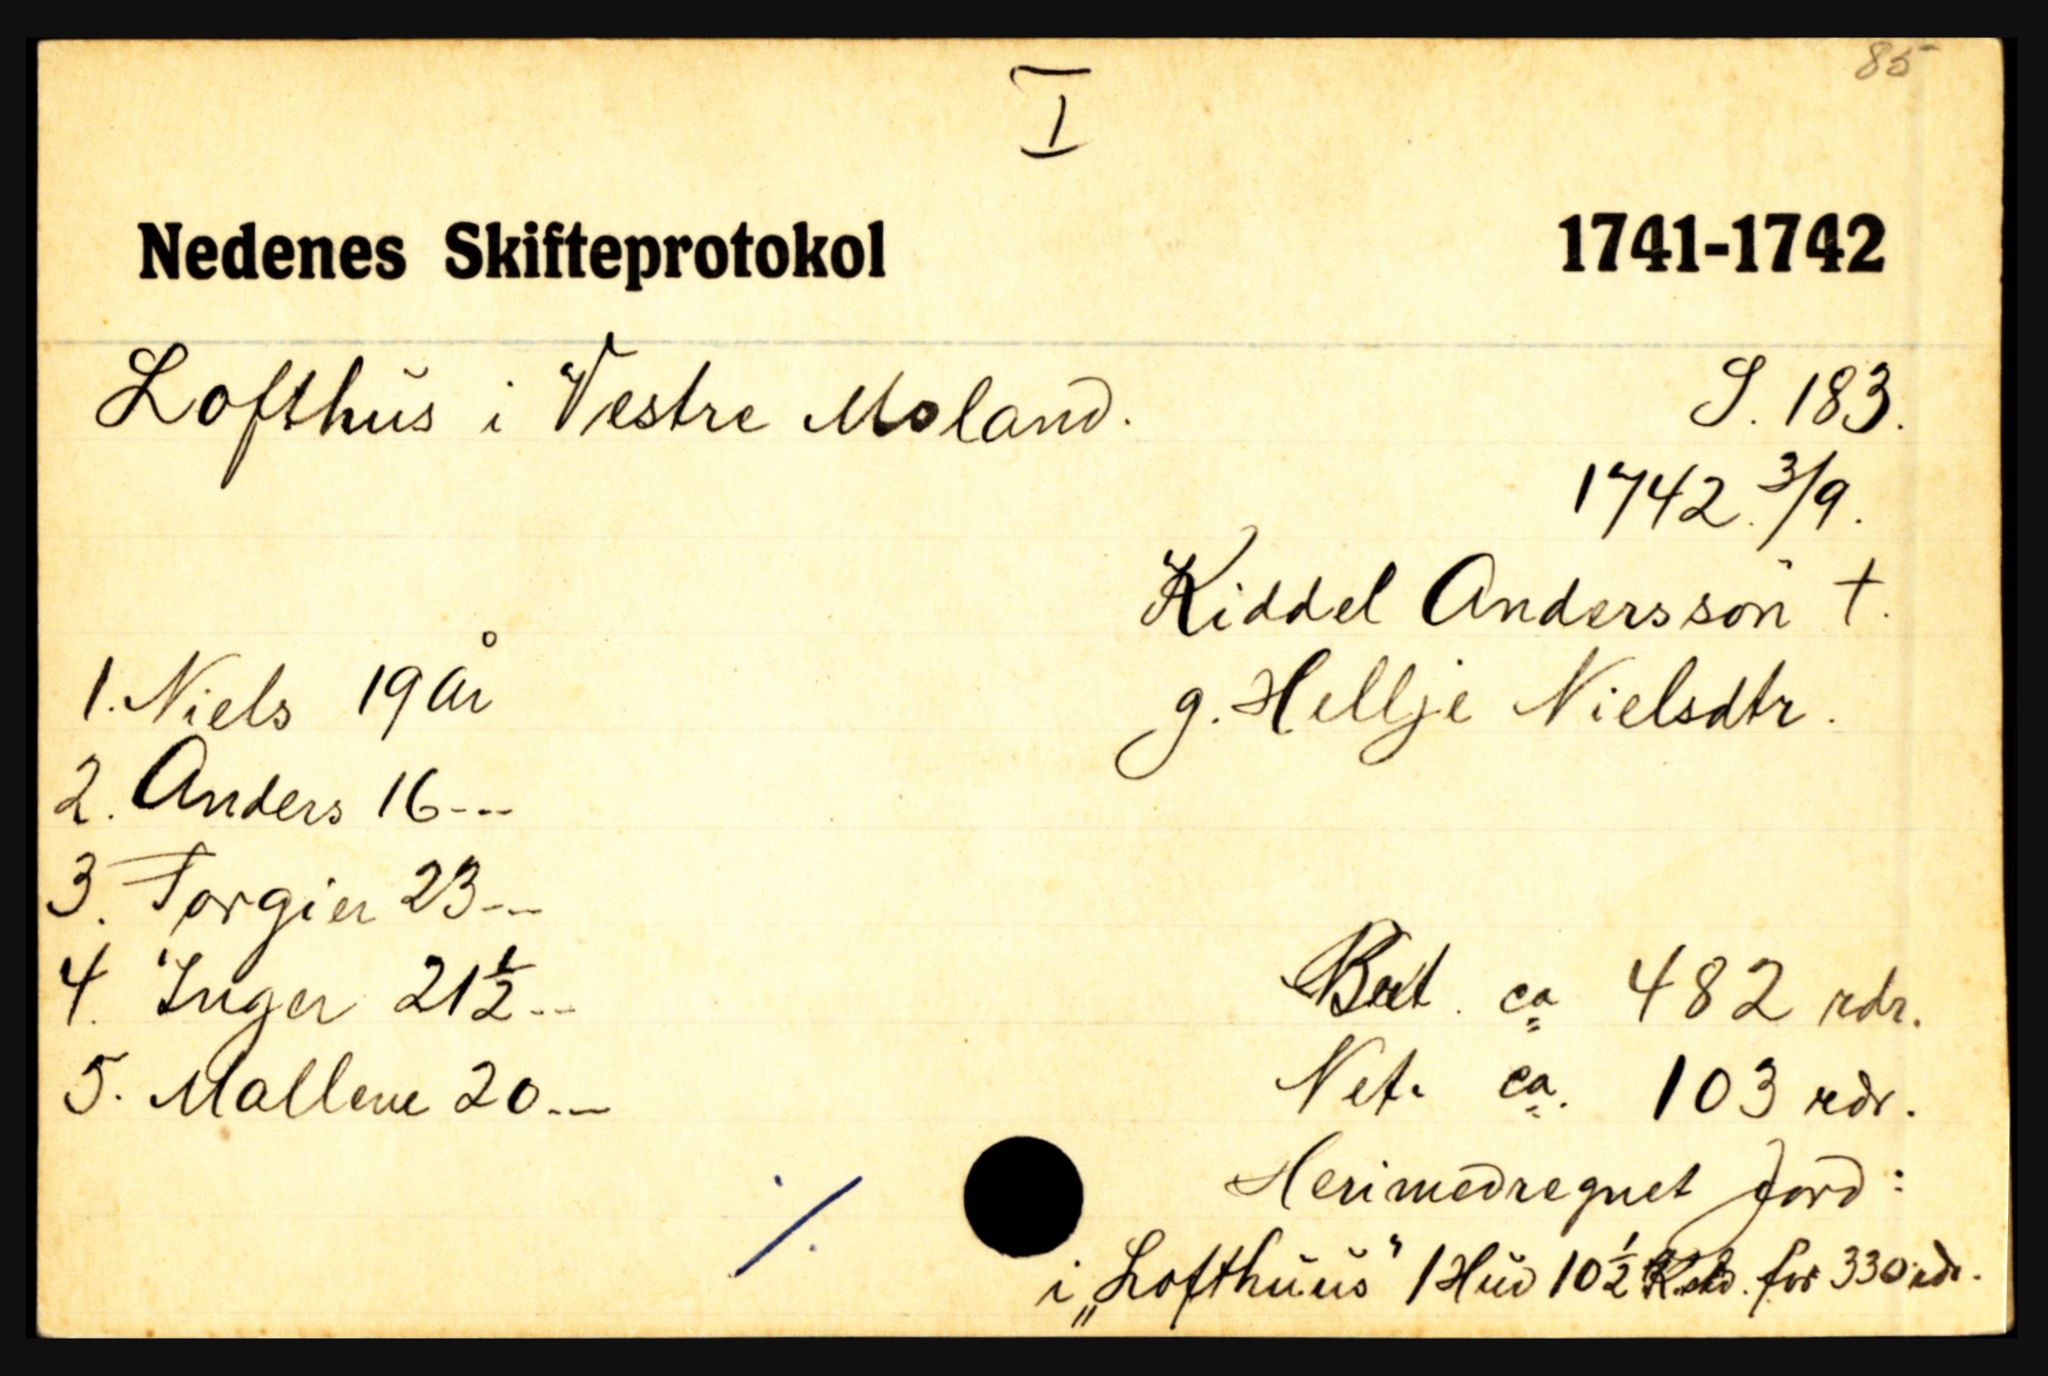 85
I
Nedenes Skifteprotokol 1741-1742
Lofthus i Vestre Moland. S. 183.
1742. 3/9.
Kiddel Andersson †.
g. Hellje Nielsdtr.
1. Niels 19 År
2. Anders 16 ---
3. Torgier 23 ---
4. Inger 21 1/2 ---
5. Mallene 20 ---
Brt. ca 482 rdr.
Net. ca. 103 rdr.
Herimedregnet Jord:
i „Lofthuus" 1 Hud 10 1/2 for 330 rdr.